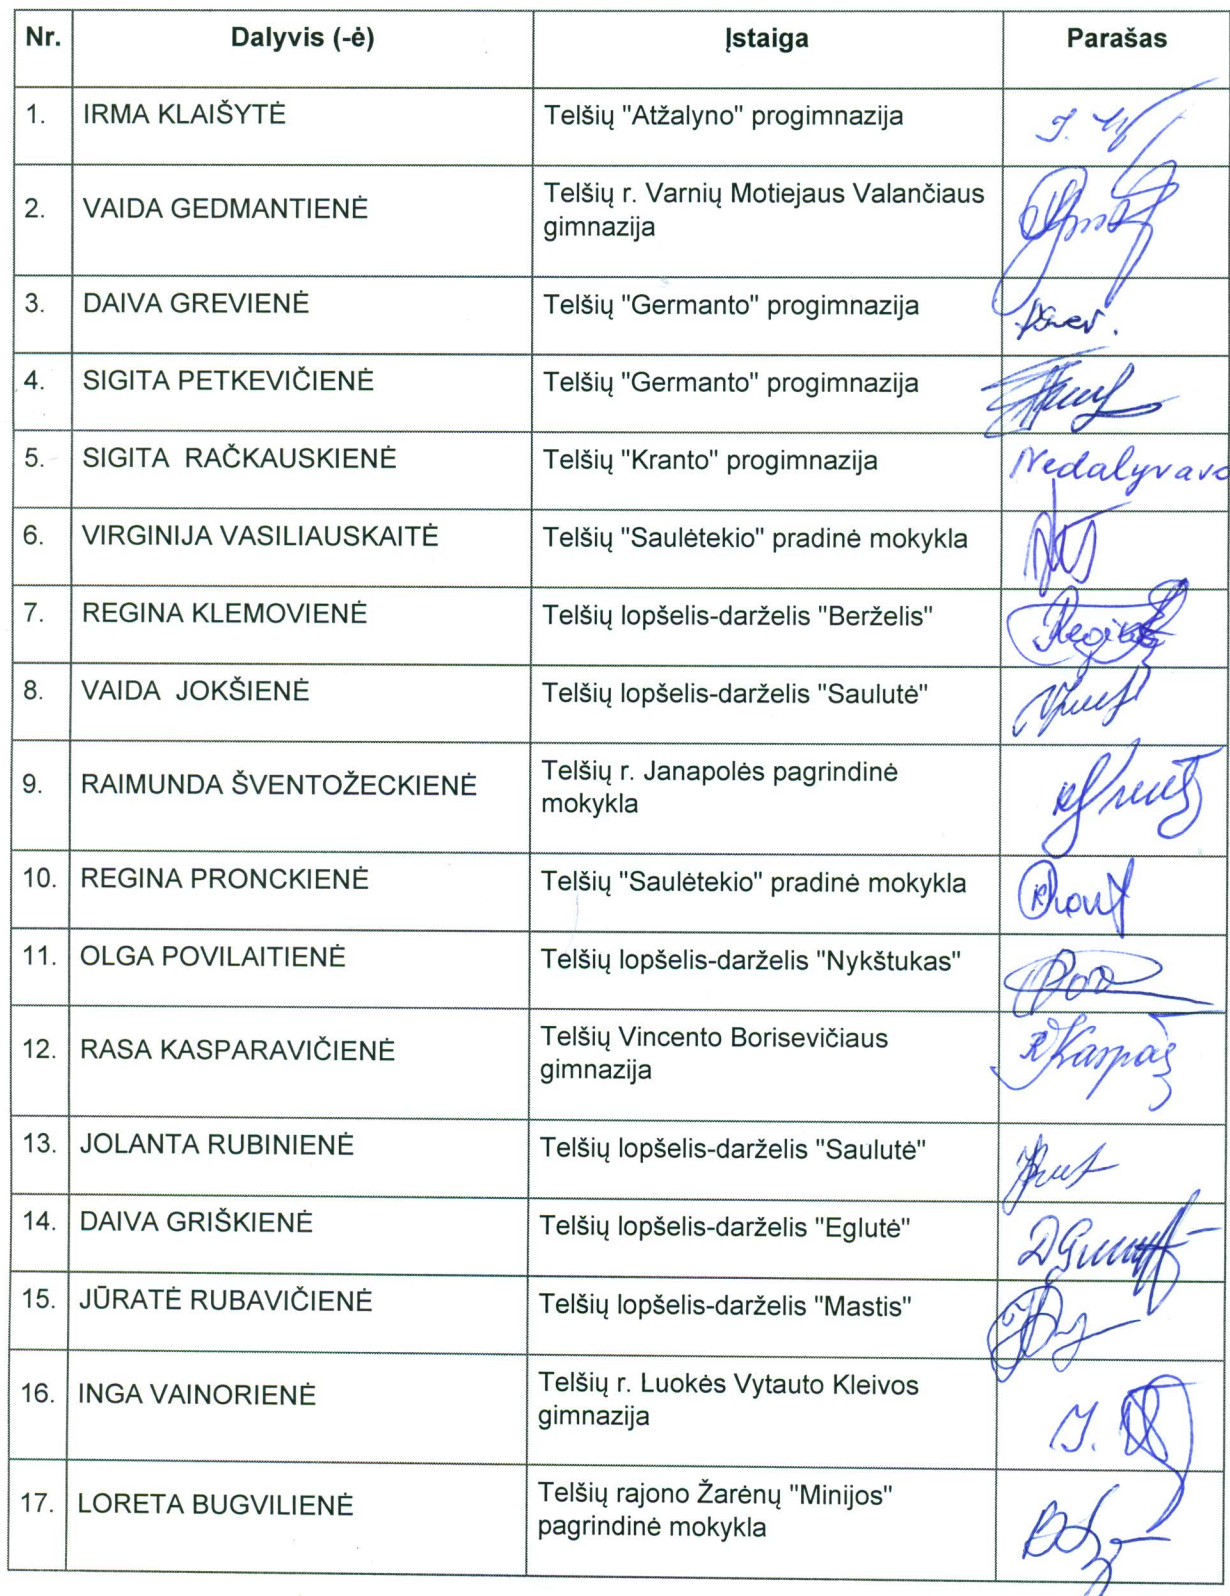 Nr. Dalyvis (-ė) Įstaiga Parašas
1. IRMA KLAIŠYTĖ Telšių "Atžalyno" progimnazija
2. VAIDA GEDMANTIENĖ Telšių r. Varnių Motiejaus Valančiaus
gimnazija
3. DAIVA GREVIENĖ Telšių "Germanto" progimnazija
4. SIGITA PETKEVIČIENĖ Telšių "Germanto" progimnazija
5. SIGITA RAČKAUSKIENĖ Telšių "Kranto" progimnazija Nedalyvavo
6. VIRGINIJA VASILIAUSKAITĖ Telšių "Saulėtekio" pradinė mokykla
7. REGINA KLEMOVIENĖ Telšių lopšelis-darželis "Berželis"
8. VAIDA JOKŠIENĖ Telšių lopšelis-darželis "Saulutė"
9. RAIMUNDA ŠVENTOŽECKIENĖ Telšių r. Janapolės pagrindinė
mokykla
10. REGINA PRONCKIENĖ Telšių "Saulėtekio" pradinė mokykla
11. OLGA POVILAITIENĖ Telšių lopšelis-darželis "Nykštukas"
12. RASA KASPARAVIČIENĖ Telšių Vincento Borisevičiaus
gimnazija
13. JOLANTA RUBINIENĖ Telšių lopšelis-darželis "Saulutė"
14. DAIVA GRIŠKIENĖ Telšių lopšelis-darželis "Eglutė"
15. JŪRATĖ RUBAVIČIENĖ Telšių lopšelis-darželis "Mastis"
16. INGA VAINORIENĖ Telšių r. Luokės Vytauto Kleivos
gimnazija
17. LORETA BUGVILIENĖ Telšių rajono Žarėnų "Minijos"
pagrindinė mokykla